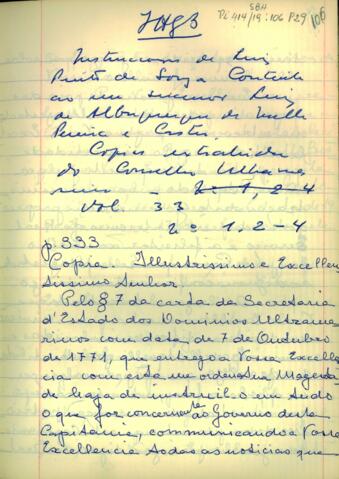 IHGB
SBH
Pi 414/19:106 P29
106
Instrucções de Luiz
Pinto de Souza Coutinho
ao seu sucessor Luiz
de Albuquerque de Mello
Pereira e Caceres
Copia extrahida
do Conselho Ultrama
rino – 2=1, 2-4
Vol. 33
nº 1, 2-4
p. 333
Copia Illustrissimo e Excellen
tissimo Senhor.
Pelo § 7 da carta da Secretaria
d'Estado dos Dominios Ultrama-
rinos com data de 7 de Outubro
de 1771, que entregou a Vossa Excellen
cia com esta me ordena Sua Magesta-
de haja de instruil-o em tudo
o que for concernente ao Governo desta
Capitania, communicando a Vossa
Excellencia todas as noticias que